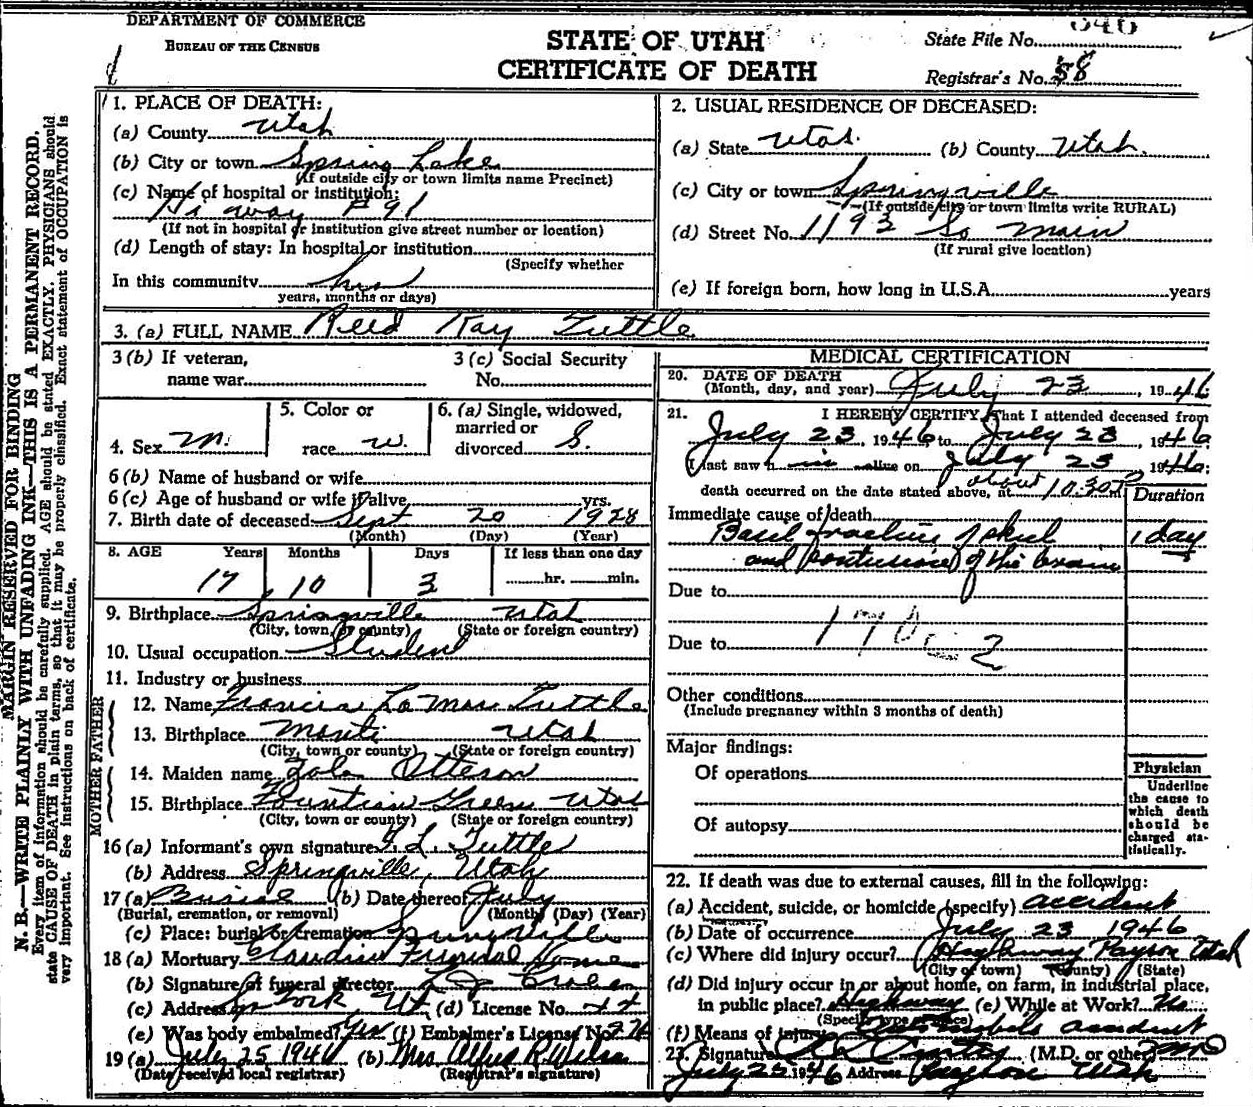 DEPARTMENT OF COMMERCE
BUREAU OF THE CENSUS
STATE OF UTAH
CERTIFICATE OF DEATH
State File No.
Registrar's No. 58
MARGIN RESERVED FOR BINDING
N. B.—WRITE PLAINLY WITH UNFADING INK—THIS IS A PERMANENT RECORD.
Every item of information should be carefully supplied. AGE should be stated EXACTLY. PHYSICIANS should
state CAUSE OF DEATH in plain terms, so that it may be properly classified. Exact statement of OCCUPATION is
very important. See instructions on back of certificate.
1. PLACE OF DEATH:
(a) County Utah
(b) City or town Spring Lake
(If outside city or town limits name Precinct)
(c) Name of hospital or institution:
Hi way 91
(If not in hospital or institution give street number or location)
(d) Length of stay: In hospital or institution
(Specify whether
In this community hrs
years, months or days)
2. USUAL RESIDENCE OF DECEASED:
(a) State Utah. (b) County Utah.
(c) City or town Springville
(If outside city or town limits write RURAL)
(d) Street No. 1193 So Main
(If rural give location)
(e) If foreign born, how long in U.S.A. years
3. (a) FULL NAME Reed Kay Tuttle
3 (b) If veteran,
name war
3 (c) Social Security
No.
4. Sex M.
5. Color or
race W.
6. (a) Single, widowed,
married or
divorced S.
6 (b) Name of husband or wife
6 (c) Age of husband or wife if alive yrs.
7. Birth date of deceased Sept 20 1928
(Month) (Day) (Year)
8. AGE Years Months Days If less than one day
17 10 3 hr. min.
9. Birthplace Springville Utah
(City, town, or county) (State or foreign country)
10. Usual occupation Student
11. Industry or business
FATHER
12. Name Francis La Mar Tuttle
13. Birthplace Manti Utah
(City, town or county) (State or foreign country)
MOTHER
14. Maiden name Zola Otteson
15. Birthplace Fountain Green Utah
(City, town or county) (State or foreign country)
16 (a) Informant's own signature F. L. Tuttle
(b) Address Springville, Utah
17 (a) Burial (b) Date thereof July
(Burial, cremation, or removal) (Month) (Day) (Year)
(c) Place: burial or cremation Springville
18 (a) Mortuary Claudin Funeral Home
(b) Signature of funeral director
(c) Address Sp Fork Ut (d) License No. 44
(e) Was body embalmed? Yes (f) Embalmer's License No.
19 (a) July 25 1946 (b) Mrs Alfred R Wilson
(Date received local registrar) (Registrar's signature)
MEDICAL CERTIFICATION
20. DATE OF DEATH
(Month, day, and year) July 23, 1946
21. I HEREBY CERTIFY, That I attended deceased from
July 23, 1946 to July 23, 1946
I last saw him alive on July 23 1946;
death occurred on the date stated above, at about 10:30 P
Duration
Immediate cause of death
Basal fracture of skul 1 day
and contusions of the brain
Due to
Due to 170c 2
Other conditions
(Include pregnancy within 3 months of death)
Major findings:
Of operations
Of autopsy
Physician
Underline
the cause to
which death
should be
charged sta-
tistically.
22. If death was due to external causes, fill in the following:
(a) Accident, suicide, or homicide (specify) accident
(b) Date of occurrence July 23 1946
(c) Where did injury occur? Highway Payson Utah
(City or town) (County) (State)
(d) Did injury occur in or about home, on farm, in industrial place,
in public place? Highway (e) While at Work? No
(Specify type of place)
(f) Means of injury Automobile accident
23. Signature (M.D. or other) MD
July 25 1946 Address Payson Utah